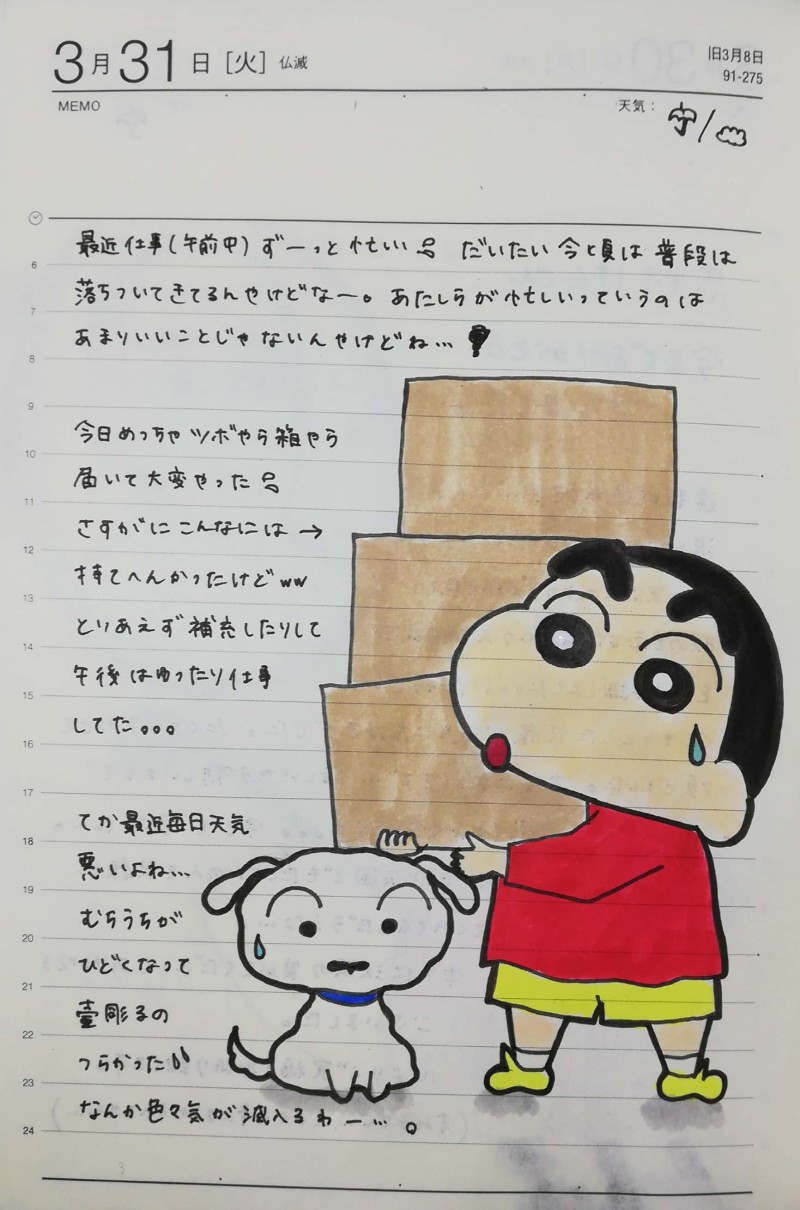 3月31日 [火] 仏滅
旧3月8日
91-275
MEMO
天気：
最近仕事(午前中)ずーっと忙しい だいたい今と頃は普段は
6
落ちついてきてるんやけどなー。あたしらが忙しいっていうのは
7
あまりいいことじゃないんやけどね…
8
9
今日めっちゃツボやら箱やら
10
届いて大変やった
11
さすがにこんなには→
12
持てへんかったけどww
13
とりあえず補充したりして
14
午後はゆったり仕事
15
してた。。。
16
17
てか最近毎日天気
18
悪いよね…
19
むちうちが
20
ひどくなって
21
壷彫るの
22
つらかった
23
なんか色々気が滅入るわー…。
24